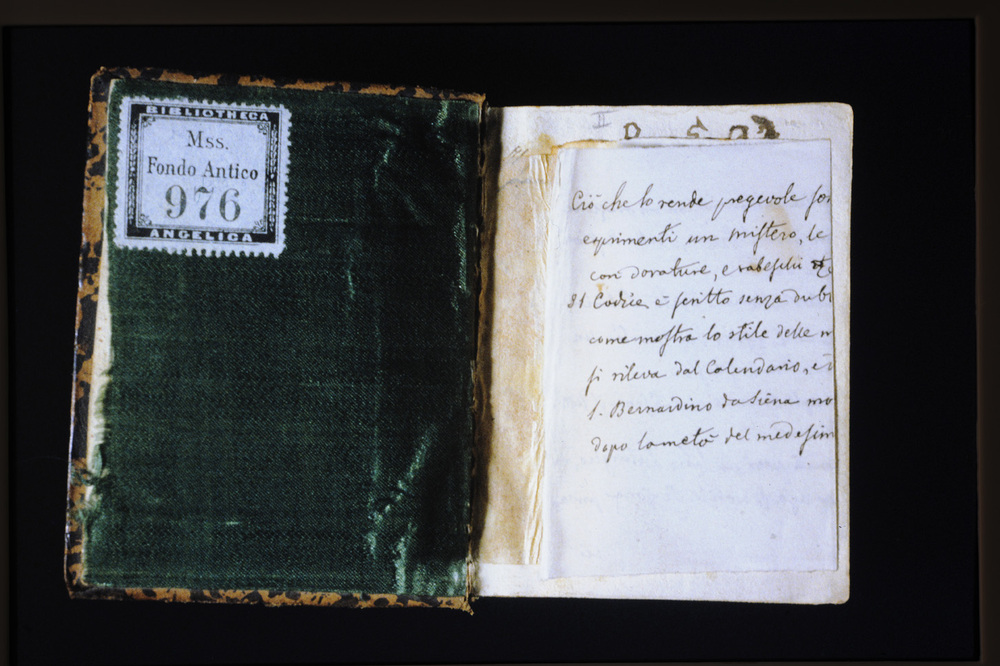 BIBLIOTHECA
Mss.
Fondo Antico
976
ANGELICA
II
Ciò che lo rende pregevole son
esprimenti un mistero, le
con dorature, e rabeschi
Il Codice è scritto senza dubi
come mostra lo stile delle m
si rileva dal Calendario, e
S. Bernardino da Siena mo
dopo la metà del medesim